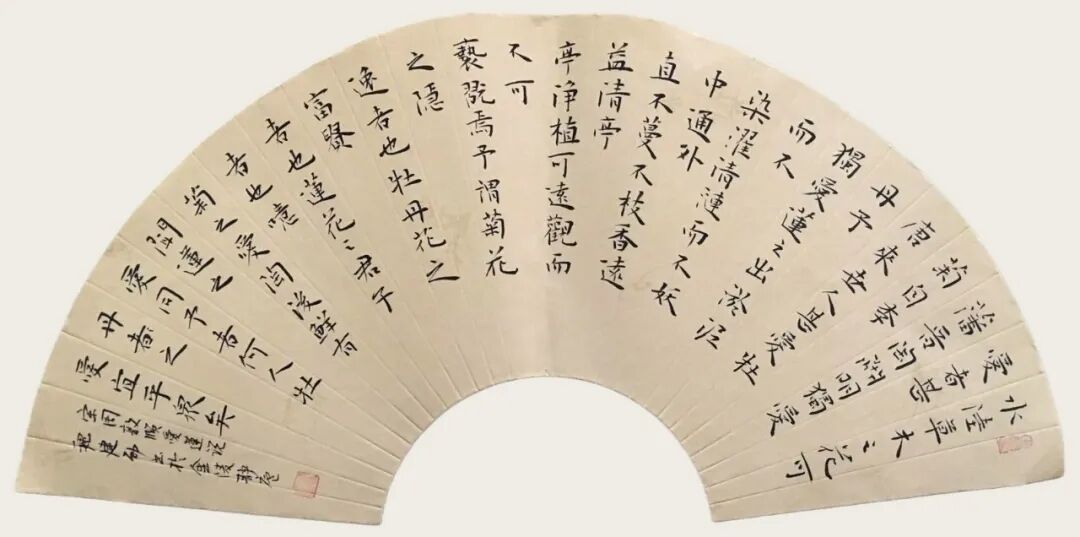 水陸草木之花可
愛者甚
蕃晉陶淵明獨愛
菊自李
唐來世人甚愛牡
丹予
獨愛蓮之出淤泥
而不
染濯清漣而不妖
中通外
直不蔓不枝香遠
益清亭
亭淨植可遠觀而
不可
褻翫焉予謂菊花
之隱
逸者也牡丹花之
富貴
者也蓮花之君子
者也噫
菊之愛陶後鮮有
聞蓮之
愛同予者何人牡
丹者之
愛宜乎眾矣
宋周敦頤愛蓮說
建書於金陵靜